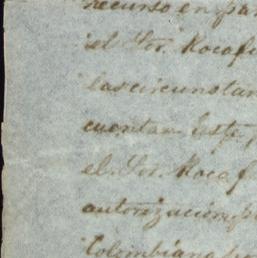 recurso en pa
el Sor. Rocaf
las circunstan
cuentan. Este,
el Sor. Rocaf
autorización p
Colombiano p